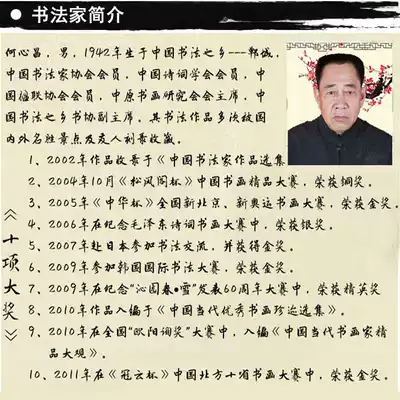 书法家简介
何心昌，男，1942年生于中国书法之乡---郸城，
中国书法家协会会员，中国诗词学会会员，中
国楹联协会会员，中原书画研究会会主席，中
国书法之乡书协副主席，其书法作品多次被国
内外名胜景点及友人利善收藏。
《十项大奖》
1、2002年作品收录于《中国书法家作品选集
2、2004年10月《松风阁杯》中国书画精品大赛，荣获铜奖。
3、2005年《中华杯》全国新北京，新奥运书画大赛，荣获金奖。
4、2006年在纪念毛泽东诗词书画大赛中，荣获银奖。
5、2007年赴日本参加书法交流，并获得金奖。
6、2009年参加韩国国际书法大赛，荣获金奖。
7、2009年在纪念“沁园春•雪”发表60周年大赛中，荣获精英奖
8、2010年作品入编于《中国当代优秀书画珍迹选集》。
9、2010年在全国“欧阳询奖”大赛中，入编《中国当代书画家精
品大观》。
10、2011年在《冠云杯》中国北方十省书画大赛中，荣获金奖。